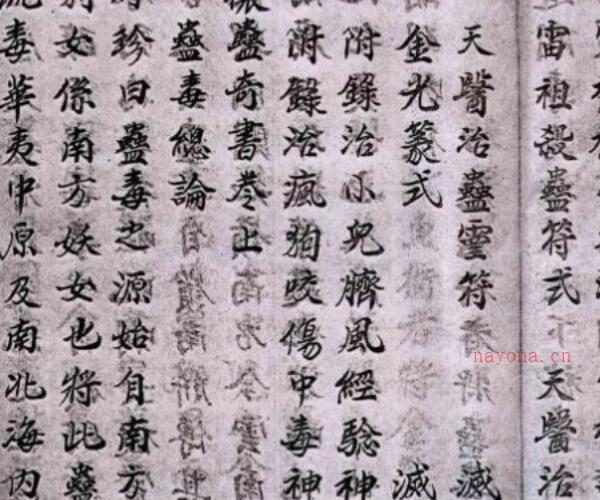 雷祖殺蠱符式 天醫治
天醫治蠱靈符 滅
金光篆式 滅
附錄治小兒臍風經騐神
附錄治瘋狗咬傷中毒神
蠱奇書卷上
蠱毒總論
珍曰蠱毒之源始自南方
女係南方妖女也將此蠱
毒華夷中原及南北海內
nayona.cn